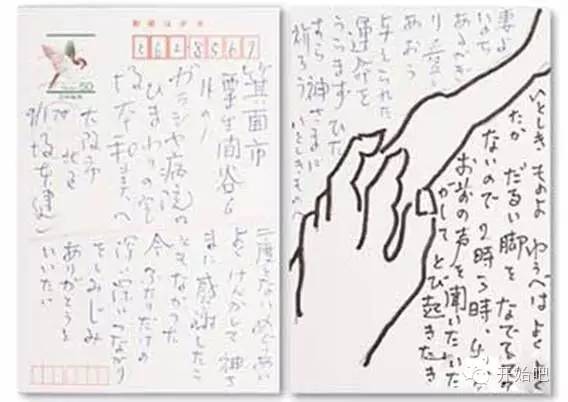 郵便はがき
50
5628567
箕面市
粟生間谷6
ガラシヤ病院の
ひまわりの室
へ
大阪市
北区
二度とないめぐりあい
よくけんかして神さ
まに感謝したこ
ともなかった
今ふたりだけの
深い深いつながり
をしみじみ
ありがとうと
いいたい
いとしきものよ ゆうべは よく
たか だるい脚を なでる
ないので 2時3時、4
お前の声を聞いた
がして とび起きた
妻よ
いのち
あるかぎ
り愛し
あおう
与えられた
運命を
ひた
すら神さまに
祈ろう
いとしきものへ
开始吧